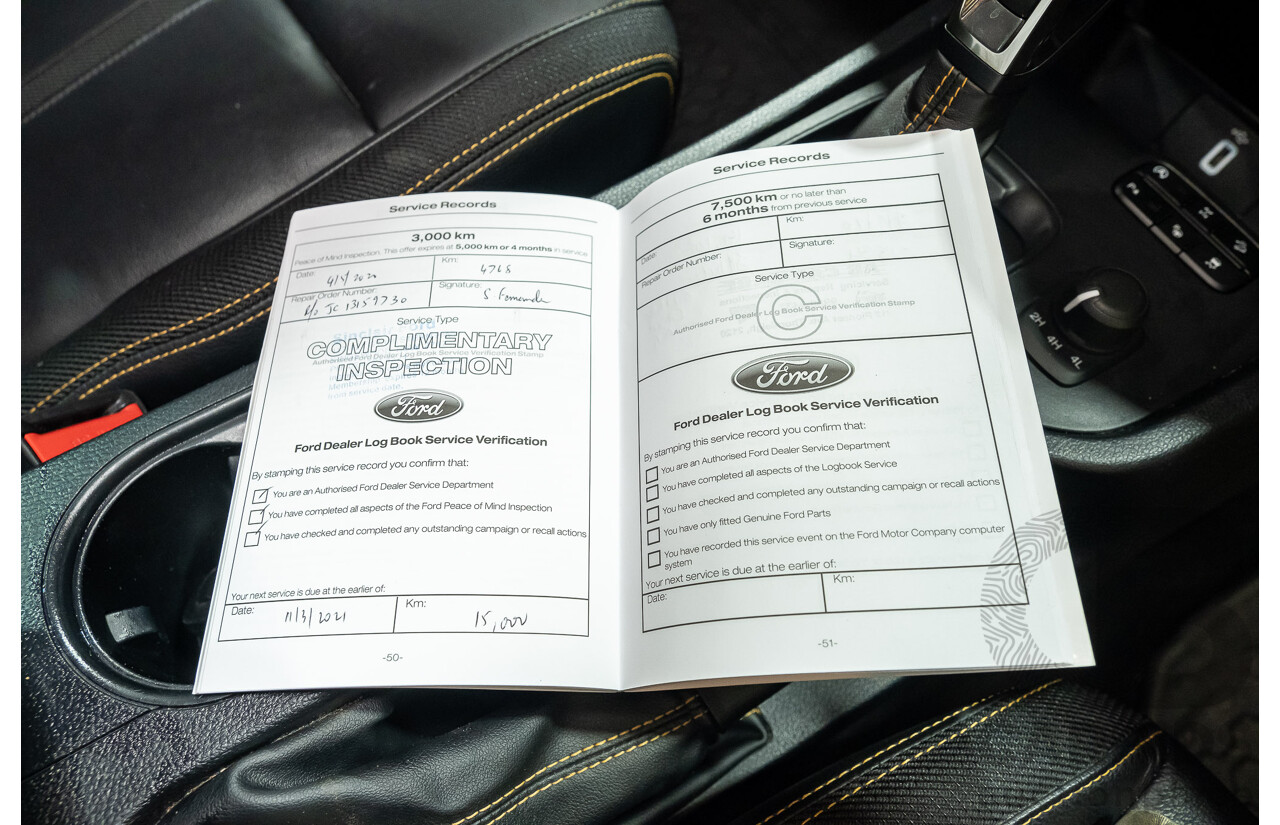 Service Records
3,000 km
Peace of Mind Inspection. This offer expires at 5,000 km or 4 months in service
Date:
Km:
4768
Repair Order Number:
R/o JC 13159730
Signature:
Service Type
Sinclair Ford
COMPLIMENTARY
Authorised Ford Dealer Log Book Service Verification Stamp
INSPECTION
Ford
Ford Dealer Log Book Service Verification
By stamping this service record you confirm that:
You are an Authorised Ford Dealer Service Department
You have completed all aspects of the Ford Peace of Mind Inspection
You have checked and completed any outstanding campaign or recall actions
Your next service is due at the earlier of:
Date:
11/3/2021
Km:
15,000
-50-
Service Records
7,500 km or no later than
6 months from previous service
Date:
Km:
Repair Order Number:
Signature:
Service Type
C
Authorised Ford Dealer Log Book Service Verification Stamp
Ford
Ford Dealer Log Book Service Verification
By stamping this service record you confirm that:
You are an Authorised Ford Dealer Service Department
You have completed all aspects of the Logbook Service
You have checked and completed any outstanding campaign or recall actions
You have only fitted Genuine Ford Parts
You have recorded this service event on the Ford Motor Company computer
system
Your next service is due at the earlier of:
Date:
Km:
-51-
2H
4H
4L